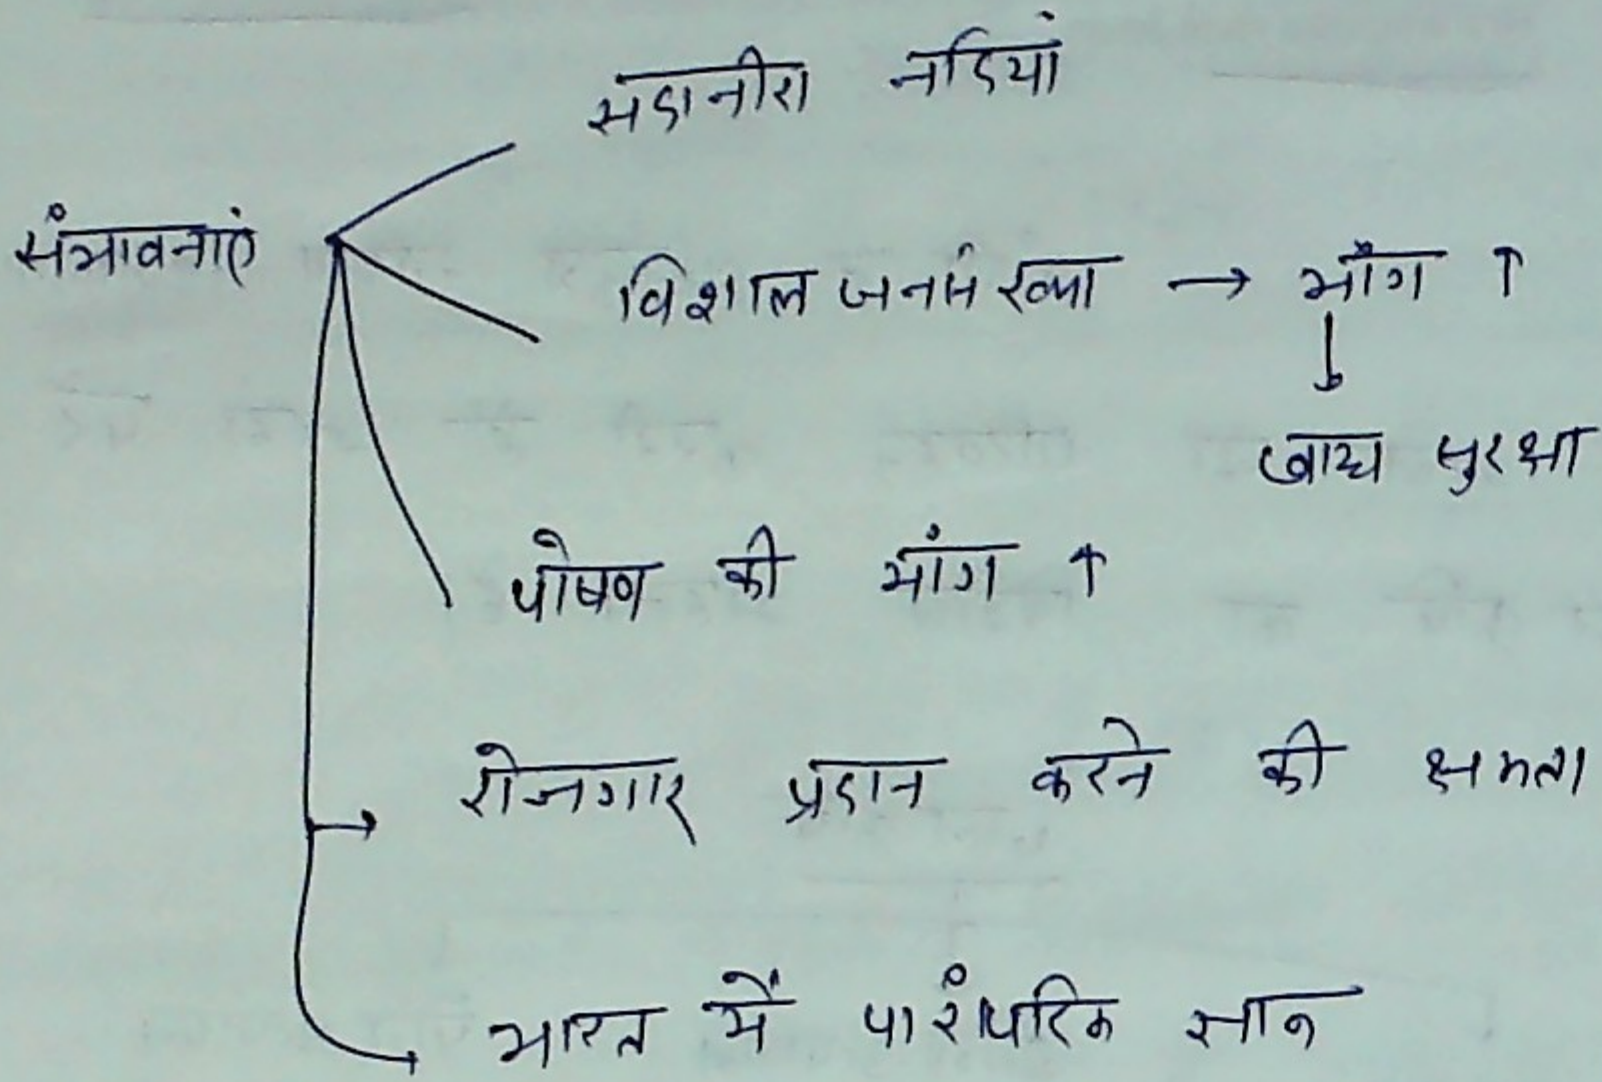 सदानीरा नदियां
संभावनाएं
विशाल जनसंख्या → माँग ↑
↓
खाद्य सुरक्षा
पोषण की मांग ↑
रोजगार प्रदान करने की क्षमता
भारत में पारंपरिक ज्ञान